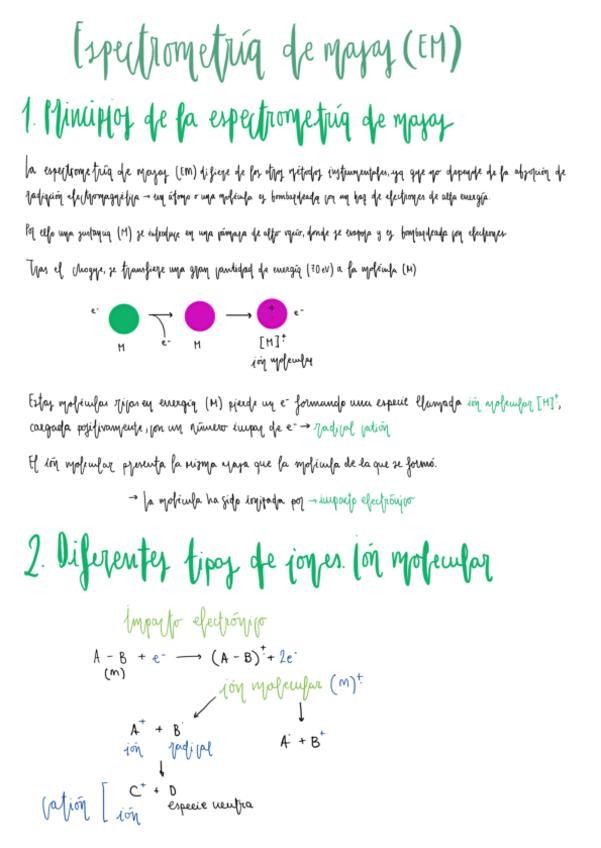 Espectrometría de masas (EM)
1. Principios de la espectrometría de masas
La espectrometría de masas (EM) difiere de los otros métodos instrumentales, ya que no depende de la absorción de
radiación electromagnética → un átomo o una molécula es bombardeada por un haz de electrones de alta energía.
Por ello una sustancia (M) se introduce en una cámara de alto vacío, donde se evapora y es bombardeada por electrones
Tras el choque, se transfiere una gran cantidad de energía (70 eV) a la molécula (M)
e⁻ → → e⁻
M e⁻ M [M]⁺
ión molecular
Estas moléculas ricas en energía (M) pierde un e⁻ formando una especie llamada ión molecular [M]⁺,
cargada positivamente, con un número impar de e⁻ → radical catión
El ión molecular presenta la misma masa que la molécula de la que se formó.
→ La molécula ha sido ionizada por → impacto electrónico
2. Diferentes tipos de iones. Ión molecular
impacto electrónico
A - B + e⁻ → (A - B)⁺· + 2e⁻
(m)
ión molecular (m)⁺·
A⁺ + B· A· + B⁺
ión radical
C⁺ + D
catión [ ión especie neutra